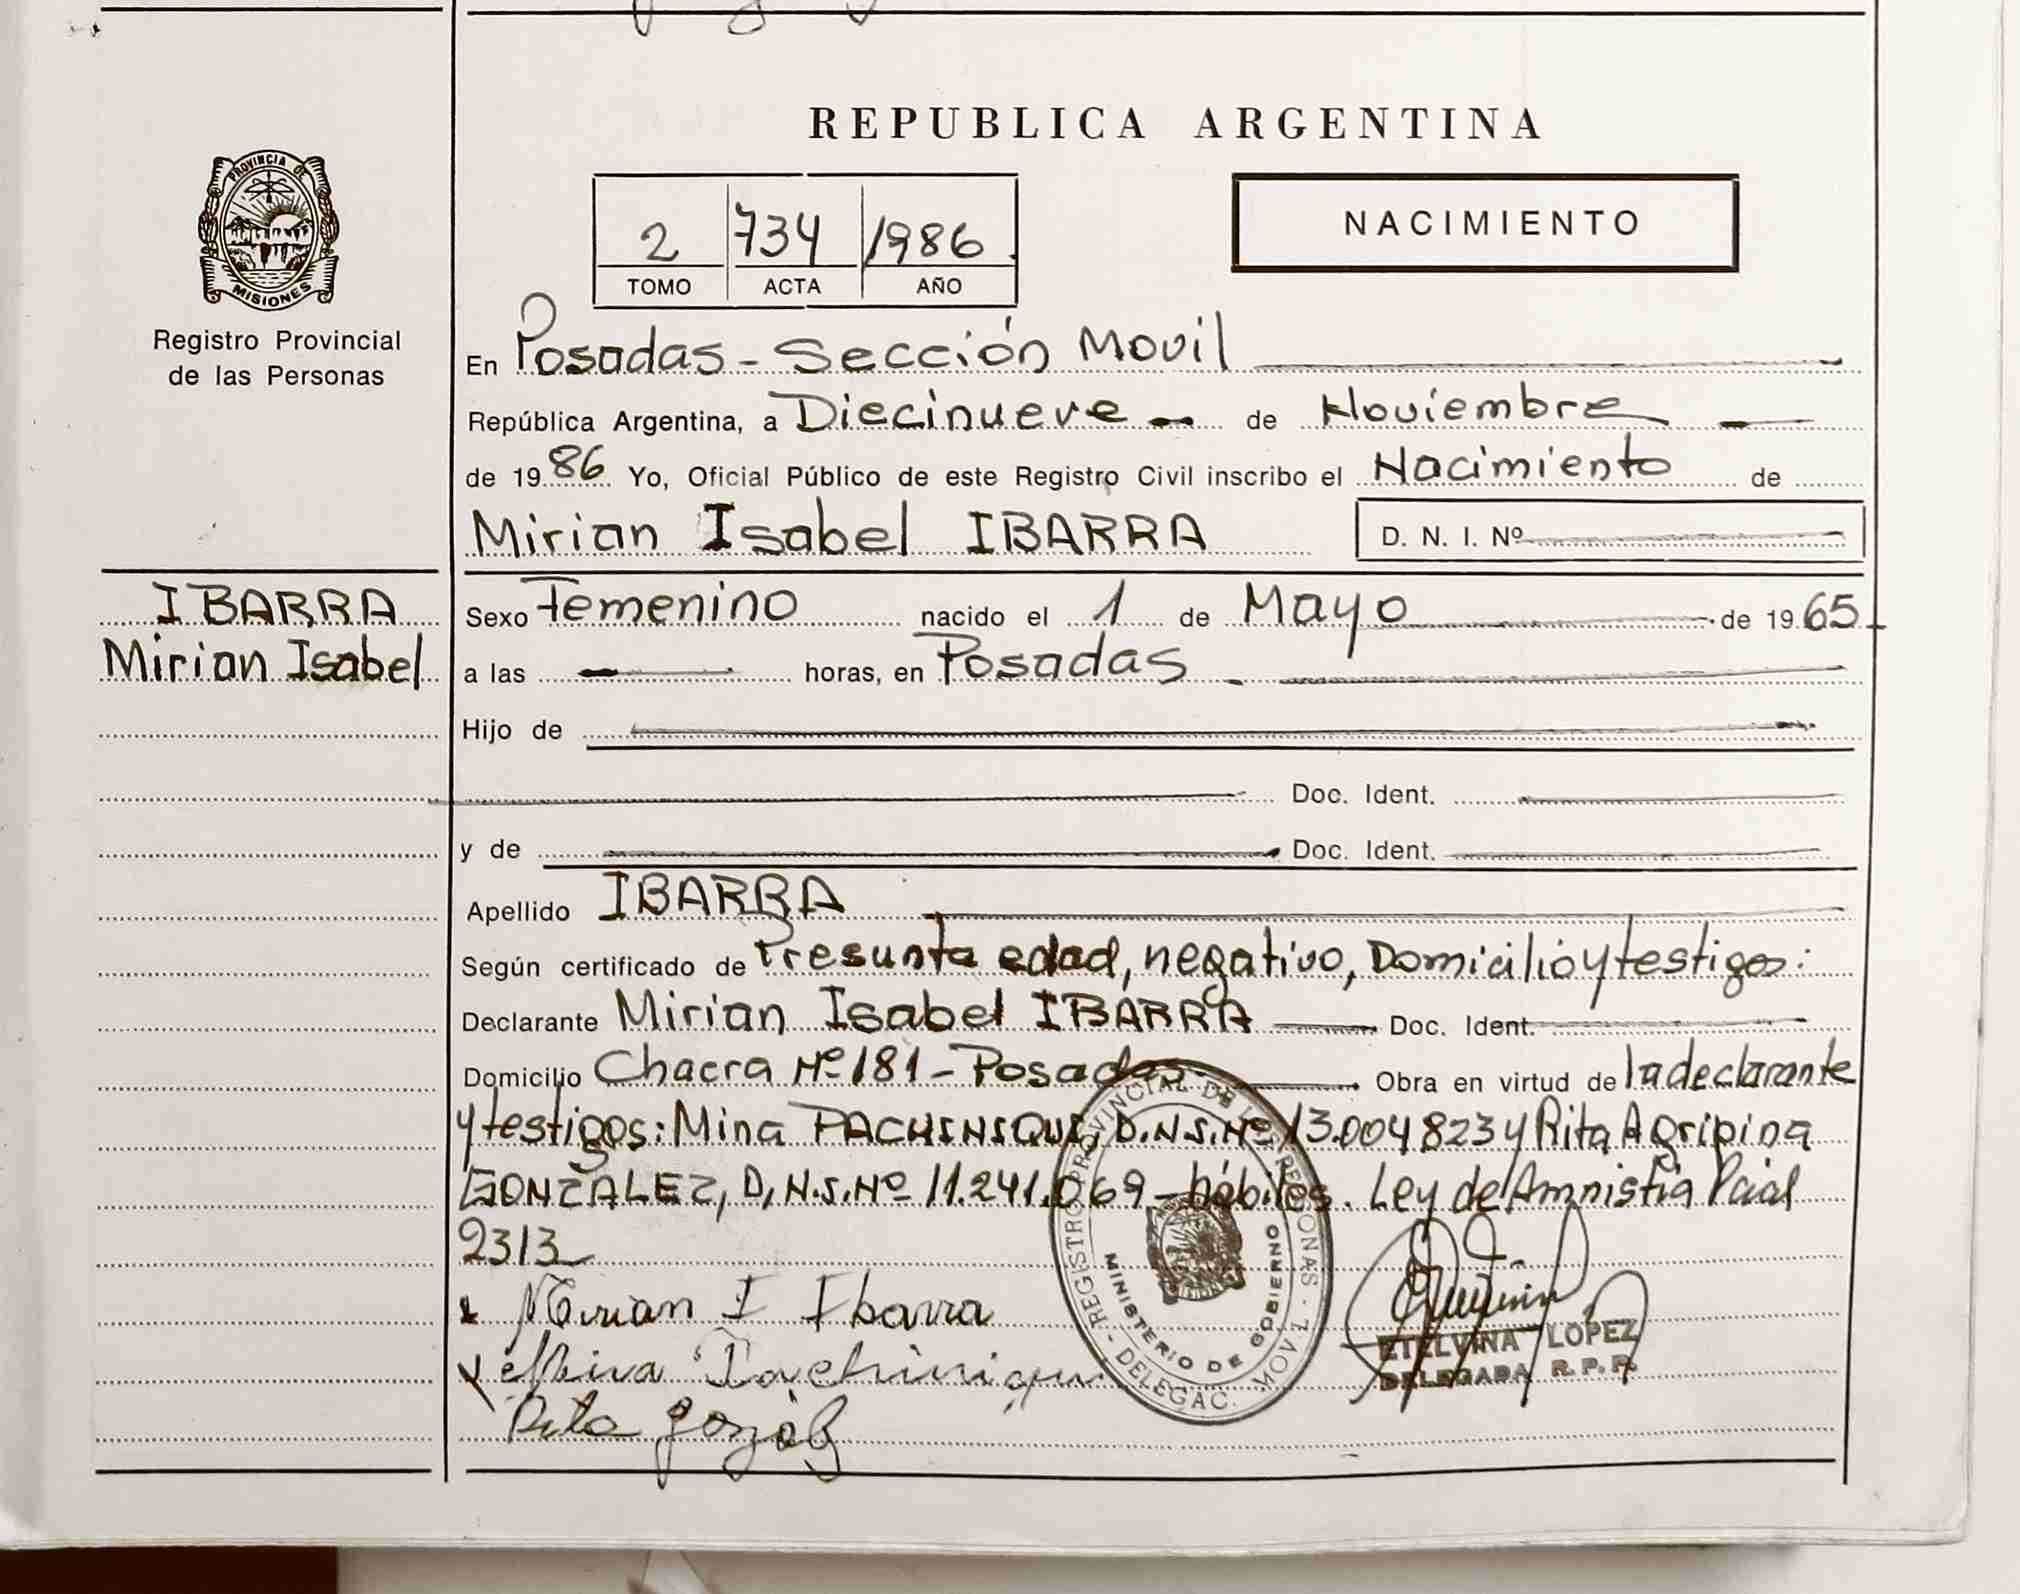 REPUBLICA ARGENTINA
PROVINCIA DE
MISIONES
Registro Provincial
de las Personas
2 734 1986
TOMO ACTA AÑO
NACIMIENTO
En Posadas - Sección Movil
República Argentina, a Diecinueve - de Noviembre
de 1986 Yo, Oficial Público de este Registro Civil inscribo el Nacimiento de
Mirian Isabel IBARRA D. N. I. Nº
IBARRA
Mirian Isabel
Sexo Femenino nacido el 1 de Mayo de 1965
a las horas, en Posadas
Hijo de
Doc. Ident.
y de Doc. Ident.
Apellido IBARRA
Según certificado de Presunta edad, negativo, Domicilio y testigos:
Declarante Mirian Isabel IBARRA Doc. Ident.
Domicilio Chacra Nº 181 - Posadas Obra en virtud de la declarante
y testigos: Mina PACHINIQUI, D.N.I. Nº 13.004.823 y Rita Agripina
GONZALEZ, D.N.I. Nº 11.241.069 - hábiles. Ley de Amnistía Pcial
2313
Mirian I Ibarra
Pachiniqui
Rita
REGISTRO PROVINCIAL DE LAS PERSONAS - DELEGAC. MOVIL
MINISTERIO DE GOBIERNO
ETELVINA LOPEZ
DELEGADA R.P.P.